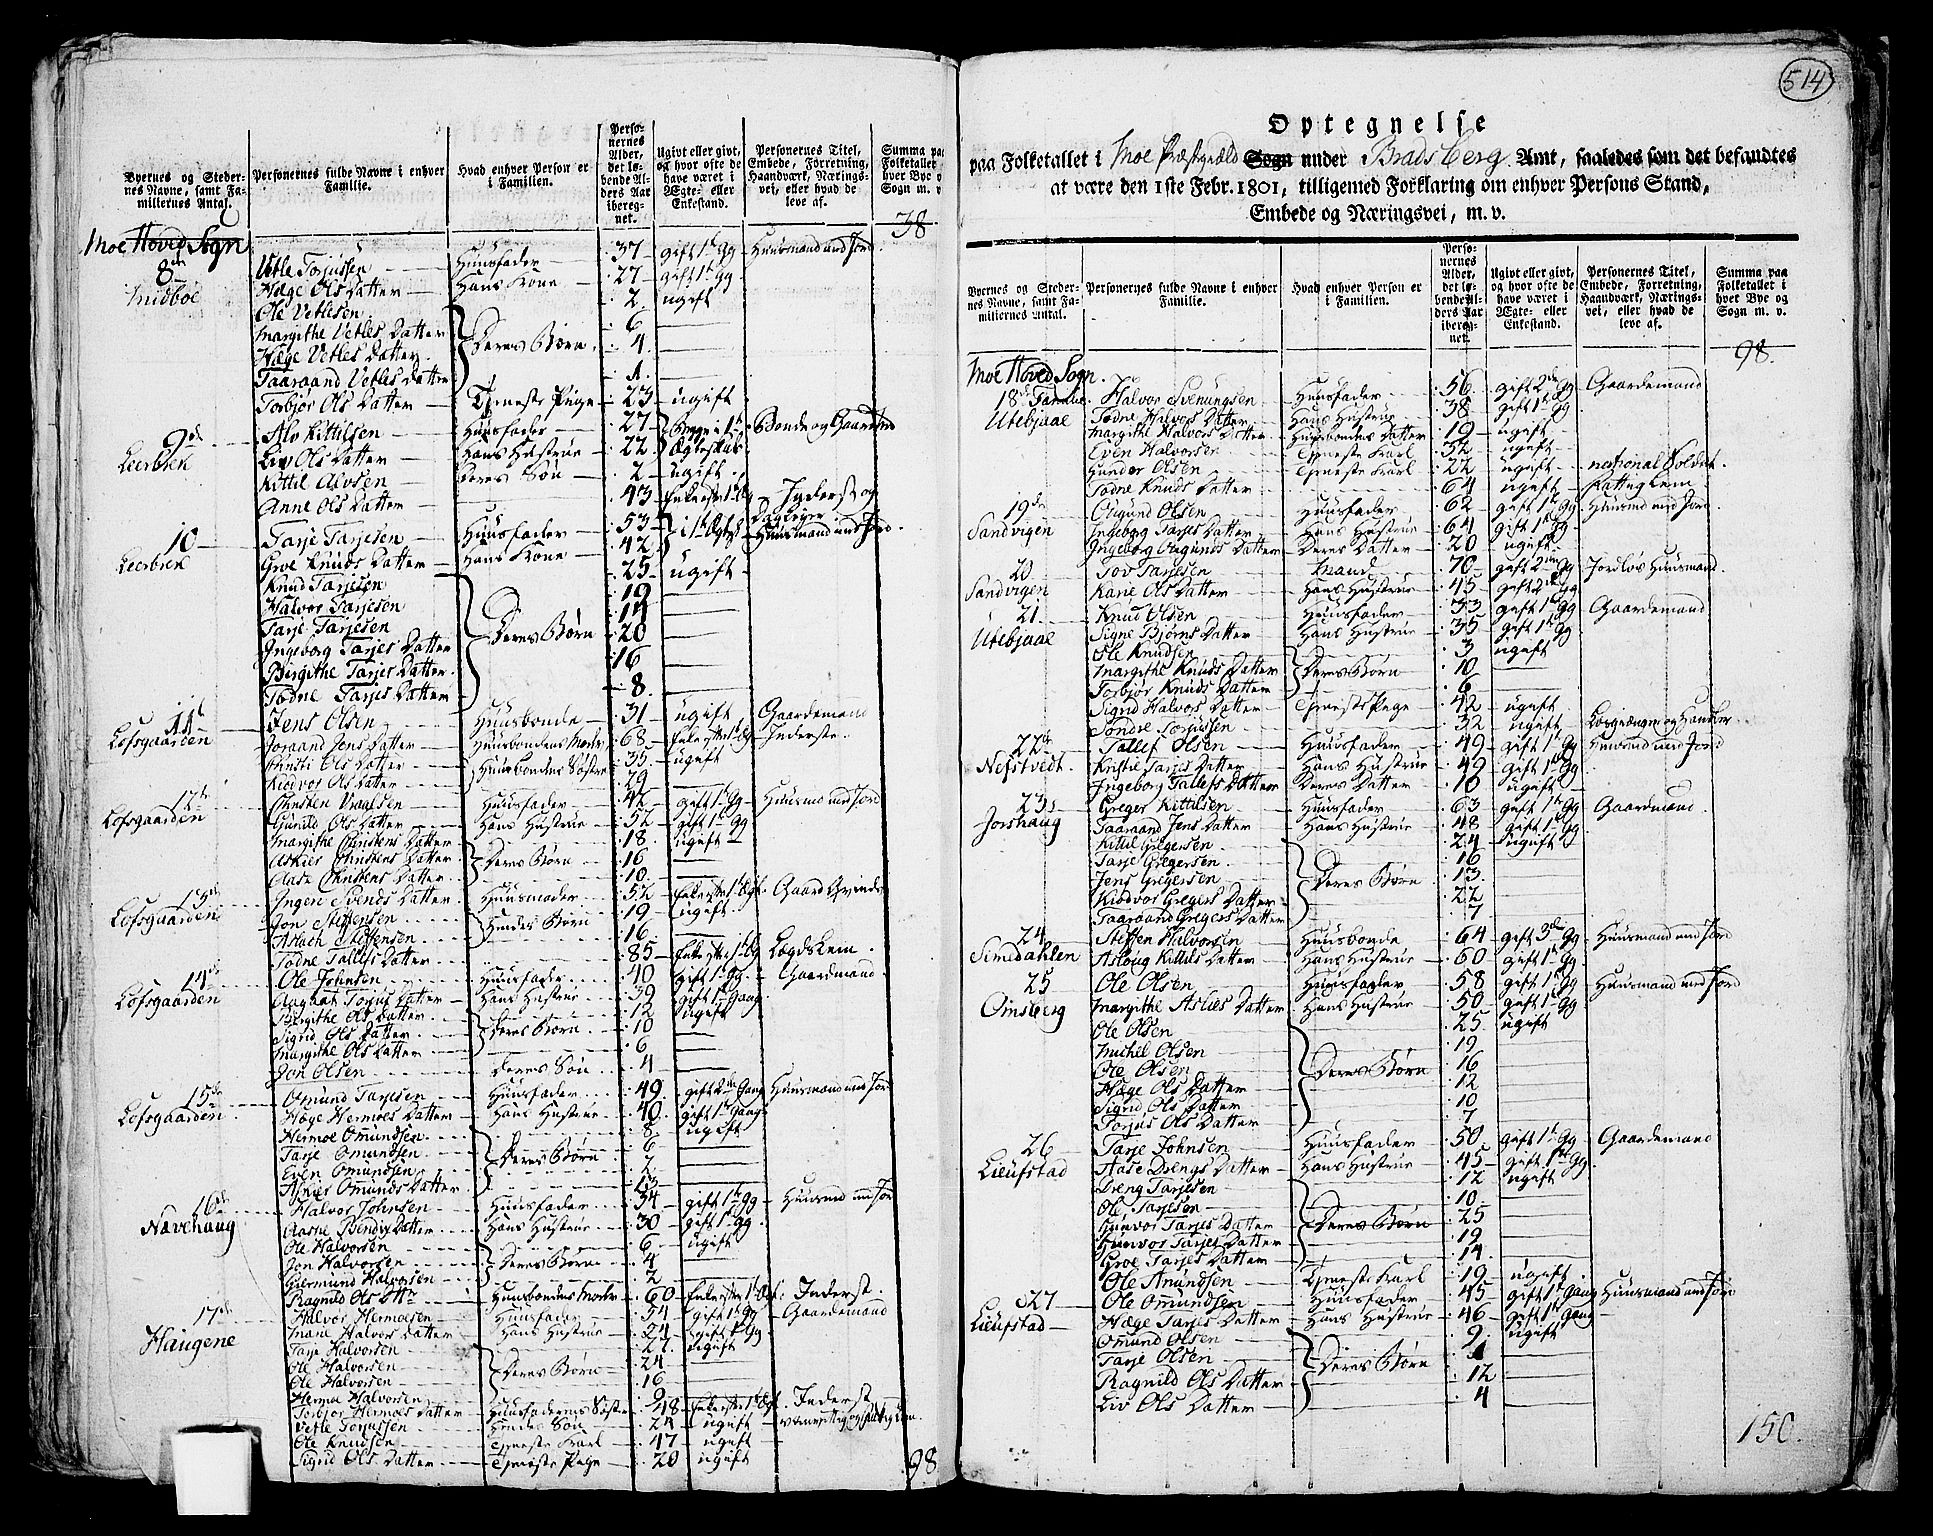 Byernes og Steder-
nes Navne, samt Fa-
miliernes Antal.
Personernes fulde Navne i enhver
Familie.
Hvad enhver Person er
i Familien.
Perso-
nernes
Alder,
det lø-
bende Al-
ders Aar
ibereg-
net.
Ugivt eller givt,
og hvor ofte de
have været i
Ægte- eller
Enkestand.
Personernes Titel,
Embede, Forretning,
Haandværk, Nærings-
vei, eller hvad de
leve af.
Summa paa
Folketallet
hver Bye
Sogn m. v.
38
Moe Hoved Sogn
8de Midbøe
Vetle Torjussen Huusfader 37 gift 1te Gg Huusmand med Jord
Hæge Ols Datter Hans Kone 27 gift 1te Gg
Ole Vetlesen 2 ugift
Margithe Vetles Datter Deres Børn 6
Hæge Vetles Datter 4
Taaraand Vetles Datter 1
Torbjør Ols Datter Tjeneste Pige 23 ugift
9de Leerbrek
Alv Kittilsen Huusfader 27 Begge i 1te Ægteskab Bonde og Gaardmand
Liv Ols Datter Hans Hustrue 22
Kittil Alvsen Deres Søn 2 ugift
Anne Ols Datter 43 Enke efter 1te Æg Inderst og
10 Leerbrek
Tarje Tarjesen Huusfader 53 i 1te Ægtesk Huusmand med Jord
Groe Knuds Datter Hans Kone 42
Knud Tarjesen 25 ugift
Halvor Tarjesen 19
Tarje Tarjesen 17
Ingeborg Tarjes Datter Deres Børn 20
Birgithe Tarjes Datter 16
Todne Tarjes Datter 8
11 Lofsgaarden
Jens Olsen Huusbonde 31 ugift Gaardemand
Joraand Jens Datter Huusbondens Moder 68 Enke efter 1te Æg Inderste
Ols Datter Huusbondens Søstre 35 ugift
Kiødvor Ols Datter 29
12te Lofsgaarden
Christen Huusfader 42 gift 1te Gg Huusmd med Jord
Gunild Ols Datter Hans Hustrue 52 gift 1te Gg
Margithe Christens Datter 18 ugift
Askier Christens Datter Deres Børn 16
Aase Christens Datter 10
13de Lofsgaarden
Ingen Svends Datter Huusmoder 52 Enke efter 1te Ægt Gaard Qvinde
Jon Steffensen Hendes Børn 19 ugift
Aslach Steffensen 16
Todne Tallefs Datter 85 Enke efter 1te Æg Logdslem
14de Lofsgaarden
Ole Johnsen Huusfader 40 gift 1te Gg Gaardemand
Aagaat Torjus Datter Hans Hustrue 39 gift 1te Gang
Birgithe Ols Datter 12 ugift
Sigrid Ols Datter Deres Børn 10
Margithe Ols Datter 6
Jon Olsen Deres Søn 4
15de Lofsgaarden
Omund Tarjesen Huusfader 49 gift 2de Gang Huusmand med Jord
Hæge Hermoes Datter Hans Hustrue 40 gift 1te Gang
Hermoe Omundsen 8 ugift
Tarje Omundsen Deres Børn 6
Even Omundsen 2
Askier Omunds Datter 13
16de Nævehaug
Halvor Johnsen Huusfader 34 gift 1te Gg Huusmd med Jord
Aasne Bendix Datter Hans Hustrue 30 gift 1te Gg
Ole Halvorsen 6 ugift
Jon Halvorsen Deres Børn 4
Giermund Halvorsen 2
Ragnild Ols Dttr Huusbondens Moder 60 Enke efter 1te Ægt Inderst
17de Haugene
Halvor Hermoesen Huusfader 54 gift 1te Gg Gaardemand
Marie Halvors Datter Hans Hustrue gift 1te Gg
Tarje Halvorsen 27 ugift
Ole Halvorsen Deres Børn 24
Ole Halvorsen 16
Hermoe Halvorsen 9
Torbjør Hermoes Datter Huusfaderens Søster 48 Enke efter 1te Ægt Inderst
Vetle Torjussen Hendes Søn 24 ugift
Ole Knudsen Tjeneste Karl 47 ugift
Sigrid Ols Datter Tjeneste Pige 20 ugift
98
514
Optegnelse
paa Folketallet i Moe Præstegield Sogn under Bradsberg Amt, saaledes som det befandtes
at være den 1ste Febr. 1801, tilligemed Forklaring om enhver Persons Stand,
Embede og Næringsvei, m. v.
Byernes og Steder-
nes Navne, samt Fa-
miliernes Antal.
Personernes fulde Navne i enhver
Familie.
Hvad enhver Person er
i Familien.
Perso-
nernes
Alder,
det lø-
bende Al-
ders Aar
ibereg-
net.
Ugivt eller givt,
og hvor ofte de
have været i
Ægte- eller
Enkestand.
Personernes Titel,
Embede, Forretning,
Haandværk, Nærings-
vei, eller hvad de
leve af.
Summa paa
Folketallet i
hver Bye og
Sogn m. v.
98
Moe Hoved Sogn
18de Familie Utebjaae
Halvor Svenungsen Huusfader 56 gift 2de Gg Gaardemand
Todne Halvors Datter Hans Hustrue 38 gift 1te Gg
Margithe Halvors Datter Huusbondes Datter 19 ugift
Even Halvorsen Tjeneste Karl 32 ugift
Gunder Olsen 22 ugift national Soldat
Todne Knuds Datter 64 ugift Fattig Lem
19de Sandvigen
Olsen Huusfader 62 gift 1te Gg Huusmd med Jord
Ingeborg Tarjes Datter Hans Hustrue 64 gift 1te Gg
Ingeborg Datter Deres Datter 20 ugift
20 Sandvigen
Tov Tarjesen Mand 70 gift 2den Gg Jordløs Huusmand
Karie Ols Datter Hans Hustrue 45 gift 2de Gg
21 Utebjaae
Knud Olsen Huusfader 33 gift 1te Gg Gaardemand
Signe Bjørns Datter Hans Hustrue 35 gift 1te Gg
Ole Knudsen 3 ugift
Margithe Knuds Datter Deres Børn 10
Torbjør Knuds Datter 6
Sigrid Halvors Datter Tjeneste Pige 42 ugift
Sondre Torjussen 32 ugift
22de Nefstvedt
Tallef Olsen Huusfader 49 gift 1te Gg Huusmd med Jord
Kristie Tarjes Datter Hans Hustrue 49 gift 1te Gg
Ingeborg Tallefs Datter Deres Datter 10 ugift
23 Jorshaug
Greger Kittilsen Huusfader 63 gift 1te Gg Gaardemand
Taaraand Jens Datter Hans Hustrue 48 gift 1te Gg
Kittil Gregersen 24 ugift
Tarje Gregersen 16
Jens Gregersen Deres Børn 13
Kiødvor Gregers Datter 22
Taaraand Gregers Datter 7
24 Simedahlen
Steffen Halvorsen Huusbonde 64 gift 3de Gg Huusmand med Jord
Aslaug Kittils Datter Hans Hustrue 60 gift 1te Gg
25 Omsberg
Ole Olsen Huusfader 58 gift 1te Gg Huusmand med Jord
Margithe Aslies Datter Hans Hustrue 50 gift 1te Gg
Ole Olsen 25 ugift
Michel Olsen 19
Ole Olsen Deres Børn 16
Hæge Ols Datter 12
Sigrid Ols Datter 10
Torjus Ols Datter 7
26 Lieufstad
Tarje Johnsen Huusfader 50 gift 1te Gg Gaardemand
Aase Drengs Datter Hans Hustrue 45 gift 1te Gg
Dreng Tarjesen 12 ugift
Ole Tarjesen 10
Gunvor Tarjes Datter Deres Børn 25
Gunvor Tarjes Datter 19
Groe Tarjes Datter 14
Ole Amundsen Tjeneste Karl 19 ugift
27 Lieufstad
Ole Ommundsen Huusfader 45 gift 1te Gang Huusmand med Jord
Hæge Tarjes Datter Hans Hustrue 46 gift 1te Gang
Omund Olsen 9 ugift
Tarje Olsen Deres Børn 1
Ragnild Ols Datter 12
Liv Ols Datter 4
150.